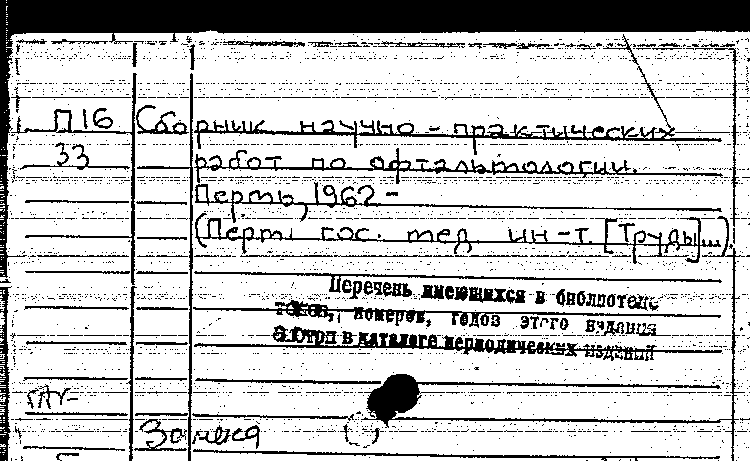 П16 Сборник научно-практических
33 работ по офтальмологии.
Пермь, 1962-
(Перм. гос. мед. ин-т. [Труды]...).
Перечень имеющихся в библиотеке
томов, номеров, годов этого издания
смотри в каталоге периодических изданий